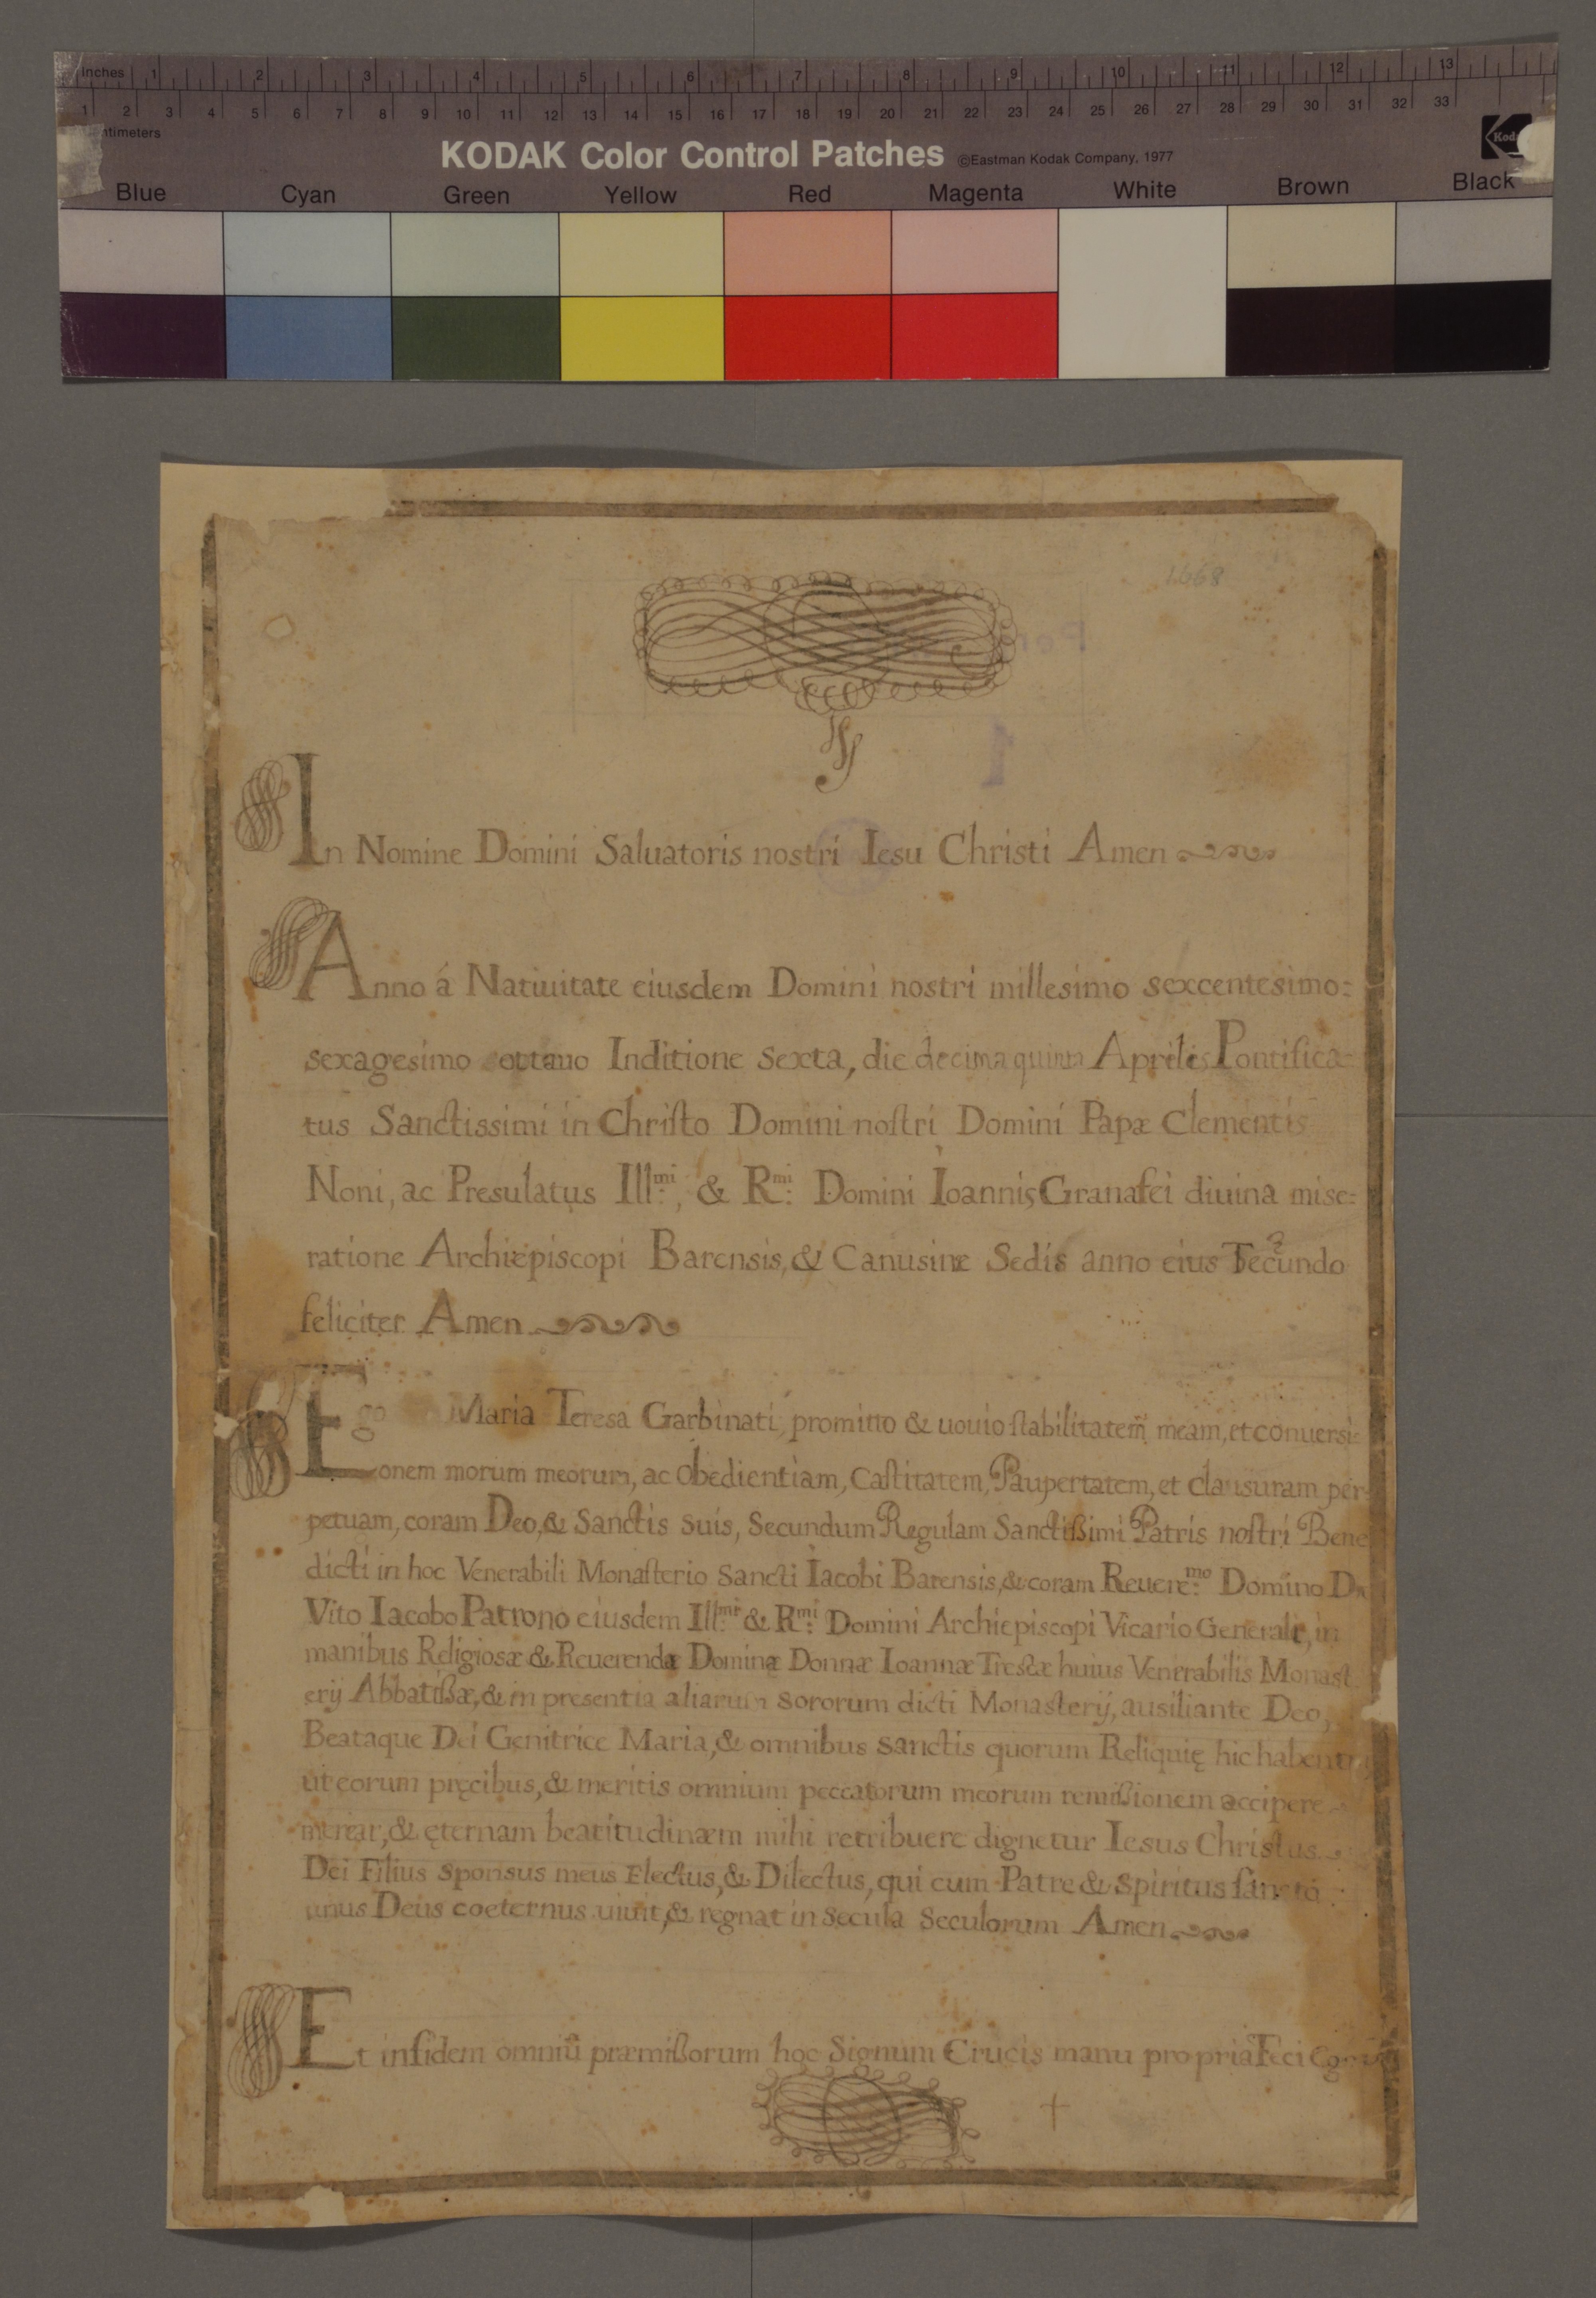 Inches 1 2 3 4 5 6 7 8 9 10 11 12 13
1 2 3 4 5 6 7 8 9 10 11 12 13 14 15 16 17 18 19 20 21 22 23 24 25 26 27 28 29 30 31 32 33
KODAK Color Control Patches ©Eastman Kodak Company, 1977
Blue Cyan Green Yellow Red Magenta White Brown Black
1668
In Nomine Domini Saluatoris nostri Iesu Christi Amen
Anno á Natiuitate eiusdem Domini nostri millesimo sexcentesimo:
sexagesimo Inditione sexta, die decima quinta Aprilis Pontifica-
tus Sanctissimi in Christo Domini nostri Domini Papæ Clementis
Noni, ac Presulatus Ill.mi, & R.mi Domini Ioannis Granafei diuina mise:
ratione Archiepiscopi Barensis, & Canusinæ Sedis anno eius
feliciter Amen
Ego Maria Teresa Garbinati, promitto & uouio stabilitatem meam, et conuersi-
onem morum meorum, ac Obedientiam, Castitatem, Paupertatem, et clausuram per-
petuam, coram Deo, & Sanctis suis, Secundum Regulam Sanctißimi Patris nostri Bene
dicti in hoc Venerabili Monasterio Sancti Iacobi Barensis, & coram Reuere.mo Domino
Vito Iacobo Patrono eiusdem Ill.mi & R.mi Domini Archiepiscopi Vicario Generale, in
manibus Religiosæ & Reuerendæ Dominæ Donnæ Ioannæ Trescæ huius Venerabilis Monast
erij Abbatißæ, & in presentia aliarum Sororum dicti Monasterij, ausiliante Deo,
Beataque Dei Genitrice Maria, & omnibus Sanctis quorum Reliquię hic habentur
ut eorum pręcibus, & meritis omnium peccatorum meorum remißionem accipere
merear, & ęternam beatitudinæm mihi retribuere dignetur Iesus Christus
Dei Filius Sponsus meus Electus, & Dilectus, qui cum Patre & Spiritus sancto
unus Deus coeternus uiuit, & regnat in Secula Seculorum Amen
Et in fidem omniū præmißorum hoc Signum Crucis manu propria Feci